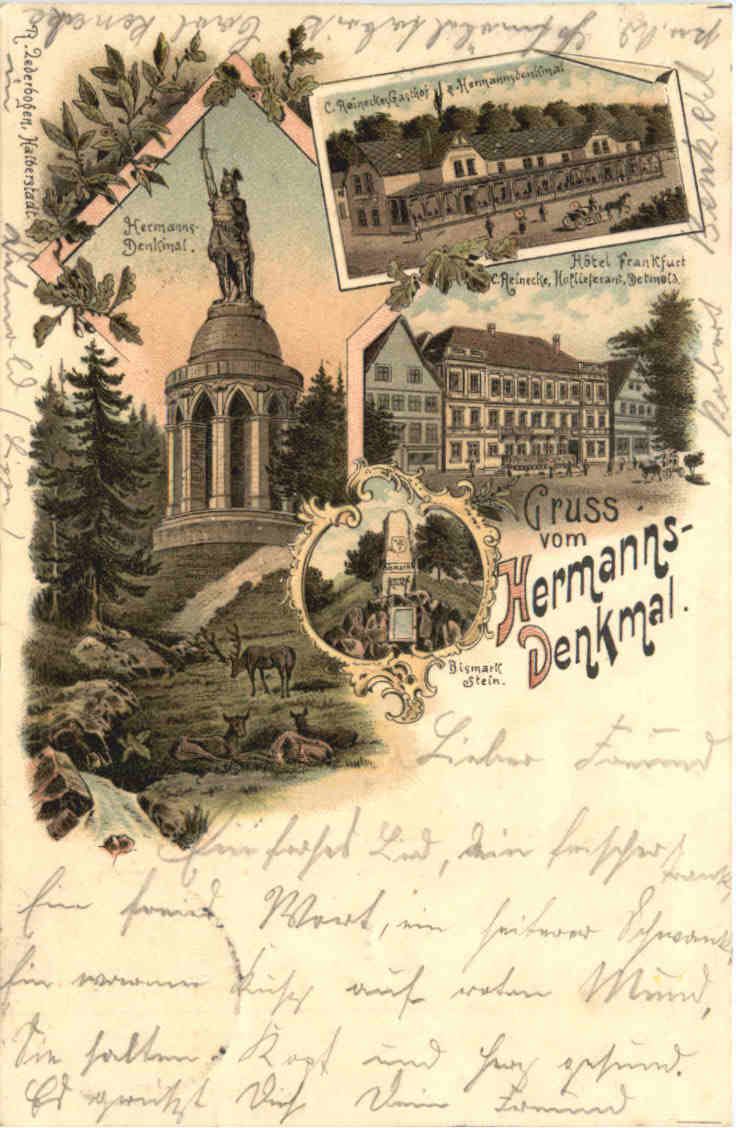 R. Lederbogen, Halberstadt.
C. Reineckes Gasthof z. Hermannsdenkmal
Hermanns-
Denkmal.
Hôtel Frankfurt
C. Reinecke, Hoflieferant, Detmold.
Gruss
vom
Hermanns-
Denkmal.
Bismark
Stein.
Lieber Freund
Ein frohes Lied, ein frischer Trank,
Ein freies Wort, ein heiterer Schwank,
Ein warmer Kuss auf roten Mund,
Die halten Kopf und Herz gesund.
Es grüsst Dich Dein Freund